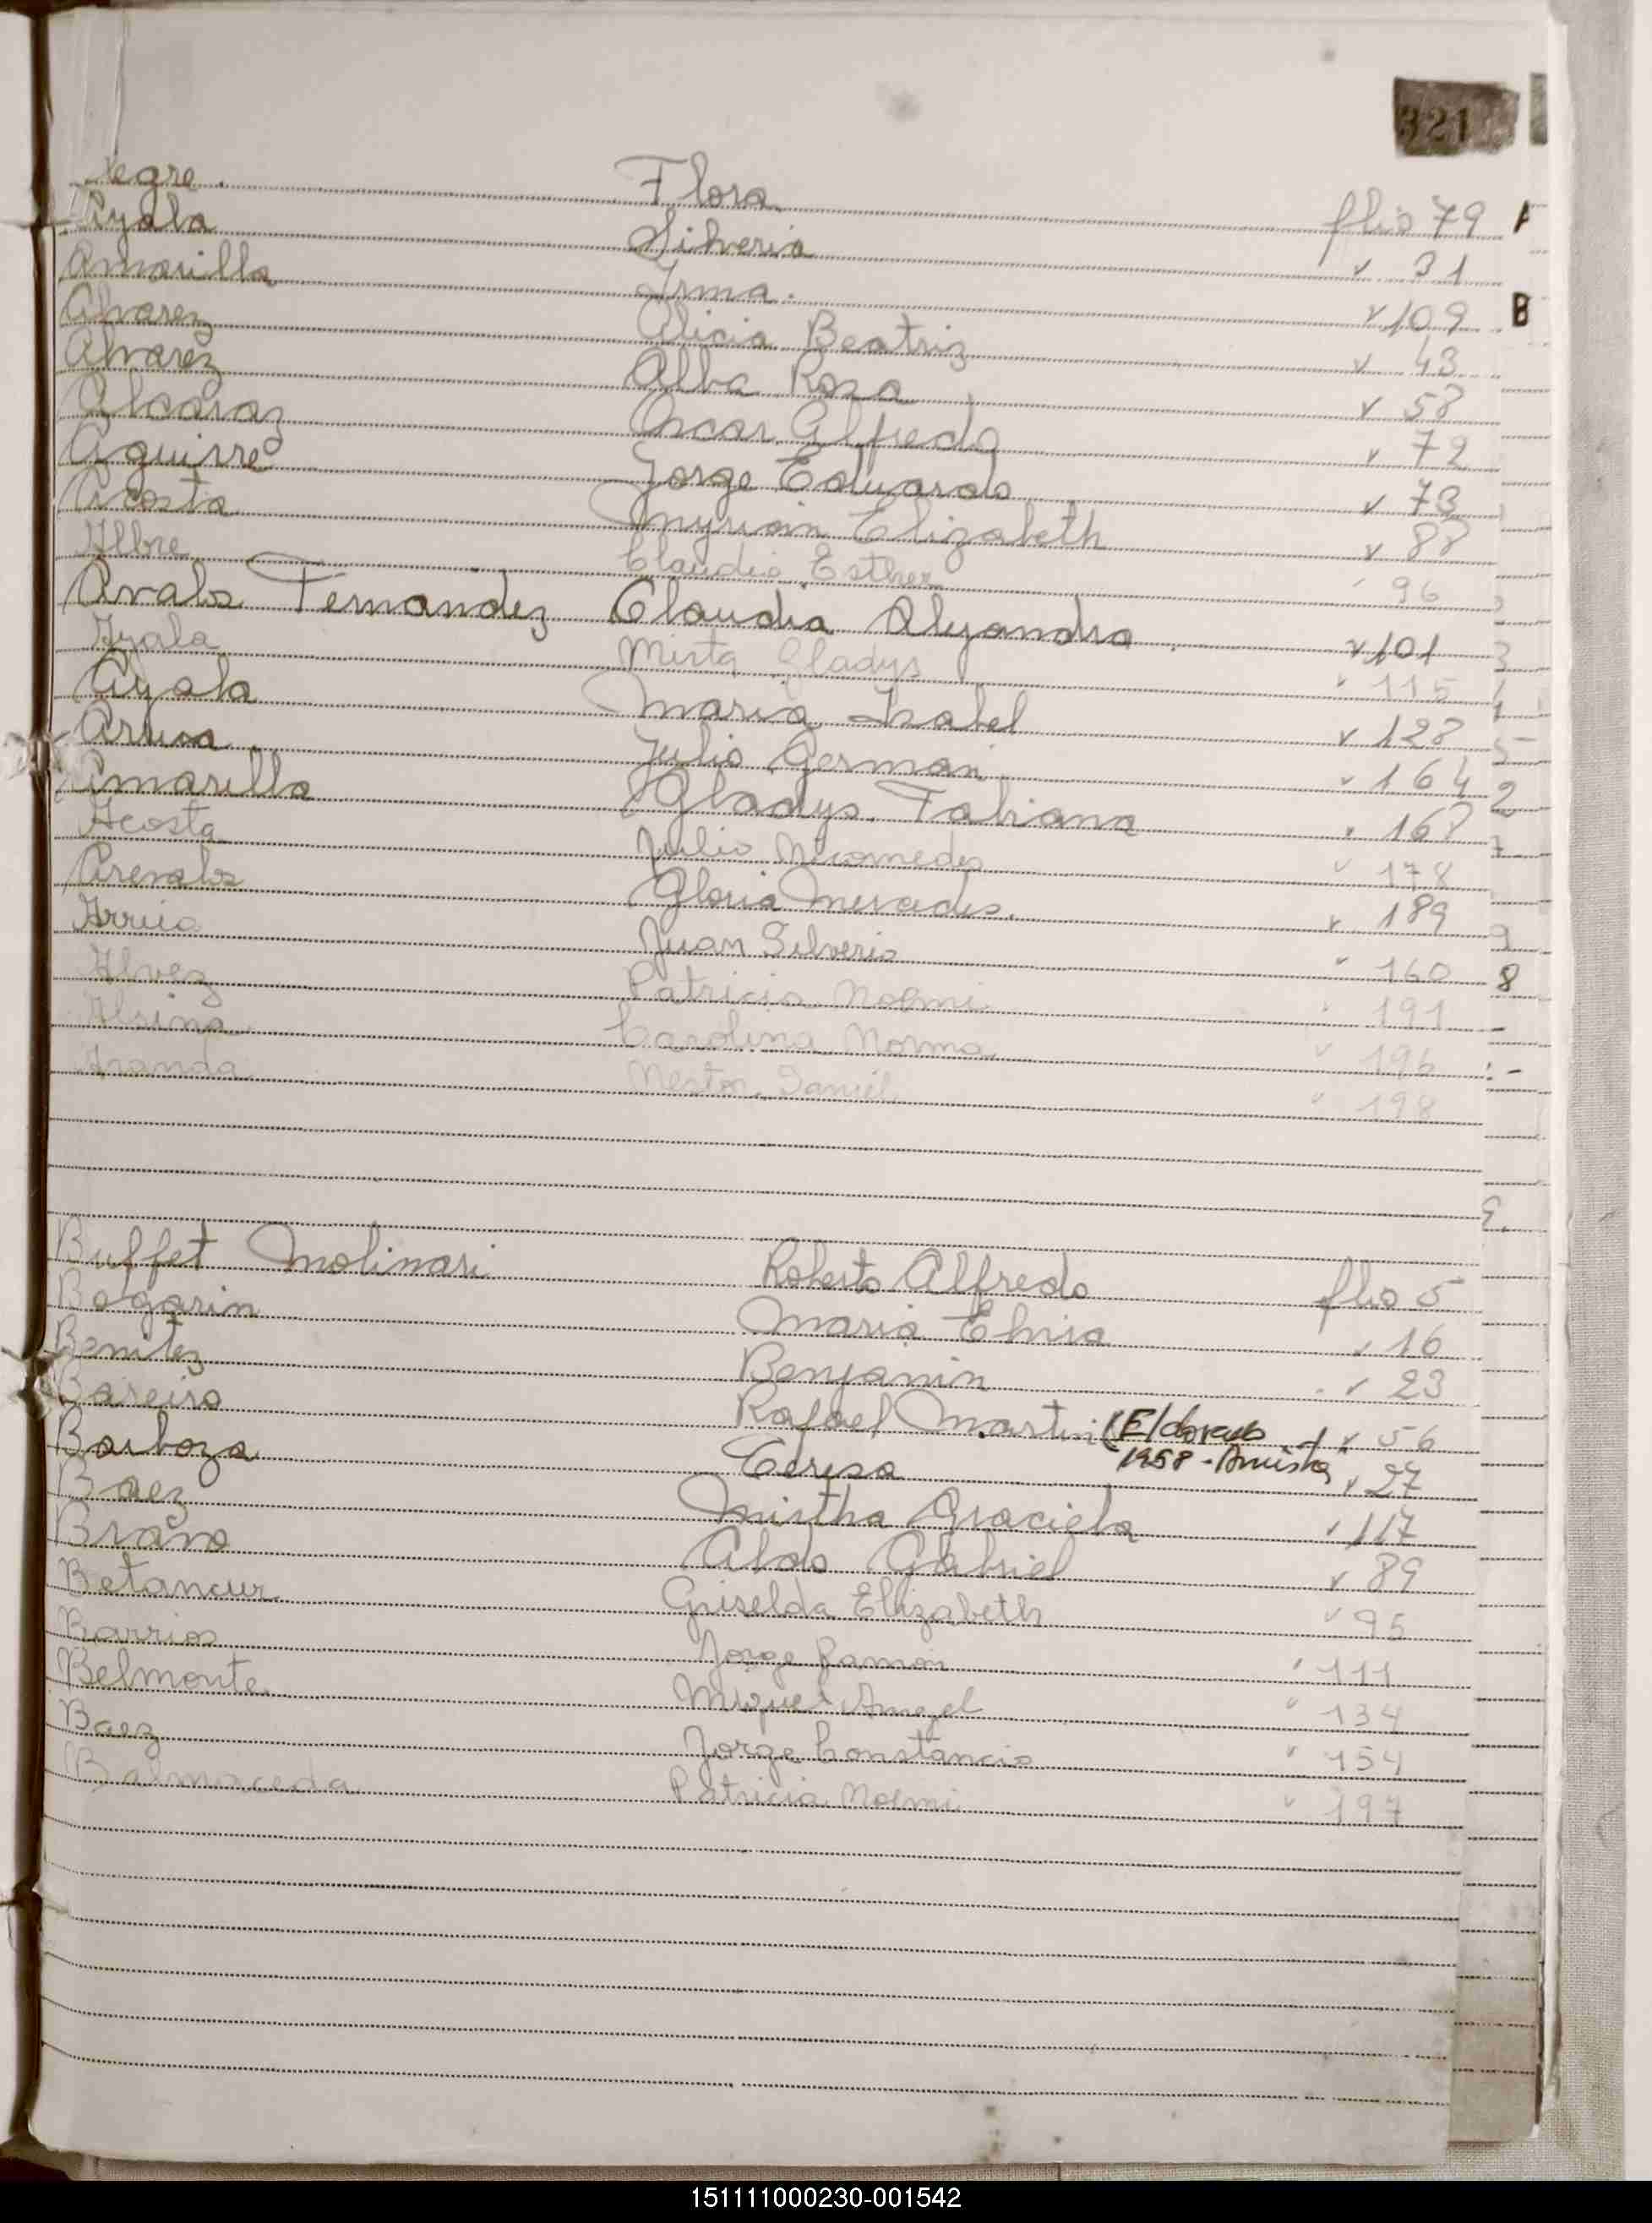 321
Flora flio 79 A
Ayala Silveria " 31
Amarilla Irma. " 109 B
Alvarez Alicia Beatriz " 43
Alvarez Alba Rosa " 58
Alcaraz Oscar Alfredo " 72
Aguirre Jorge Eduardo " 73
Acosta Myriam Elizabeth " 88
Albre Claudia Esther " 96
Avalos Fernandez Claudia Alejandra " 101
Ayala Mirta Gladys " 115
Ayala Maria Isabel " 128
Arrua Julio German " 164 2
Amarilla Gladys Fabiana " 168
Acosta Julio Nicomedes " 178
Arevalos Gloria Mercedes. " 189
Arrua Juan Silverio " 160 8
Alvez Patricia Noemi " 191
Alsina Carolina Norma " 196
Aranda Nestor Daniel " 198
Buffet Molinari Roberto Alfredo flio 5
Bogarin Maria Elvira " 16
Benitez Benjamin " 23
Bareiro Rafael Martin (Eldorado " 56
Barboza Teresa 1958 - " 27
Baez Mirtha Graciela " 117
Bravo Aldo Gabriel " 89
Betancur Griselda Elizabeth " 95
Barrios Jorge Ramon " 111
Belmonte Miguel Angel " 134
Baez Jorge Constancio " 154
Balmaceda Patricia Noemi " 197
151111000230-001542